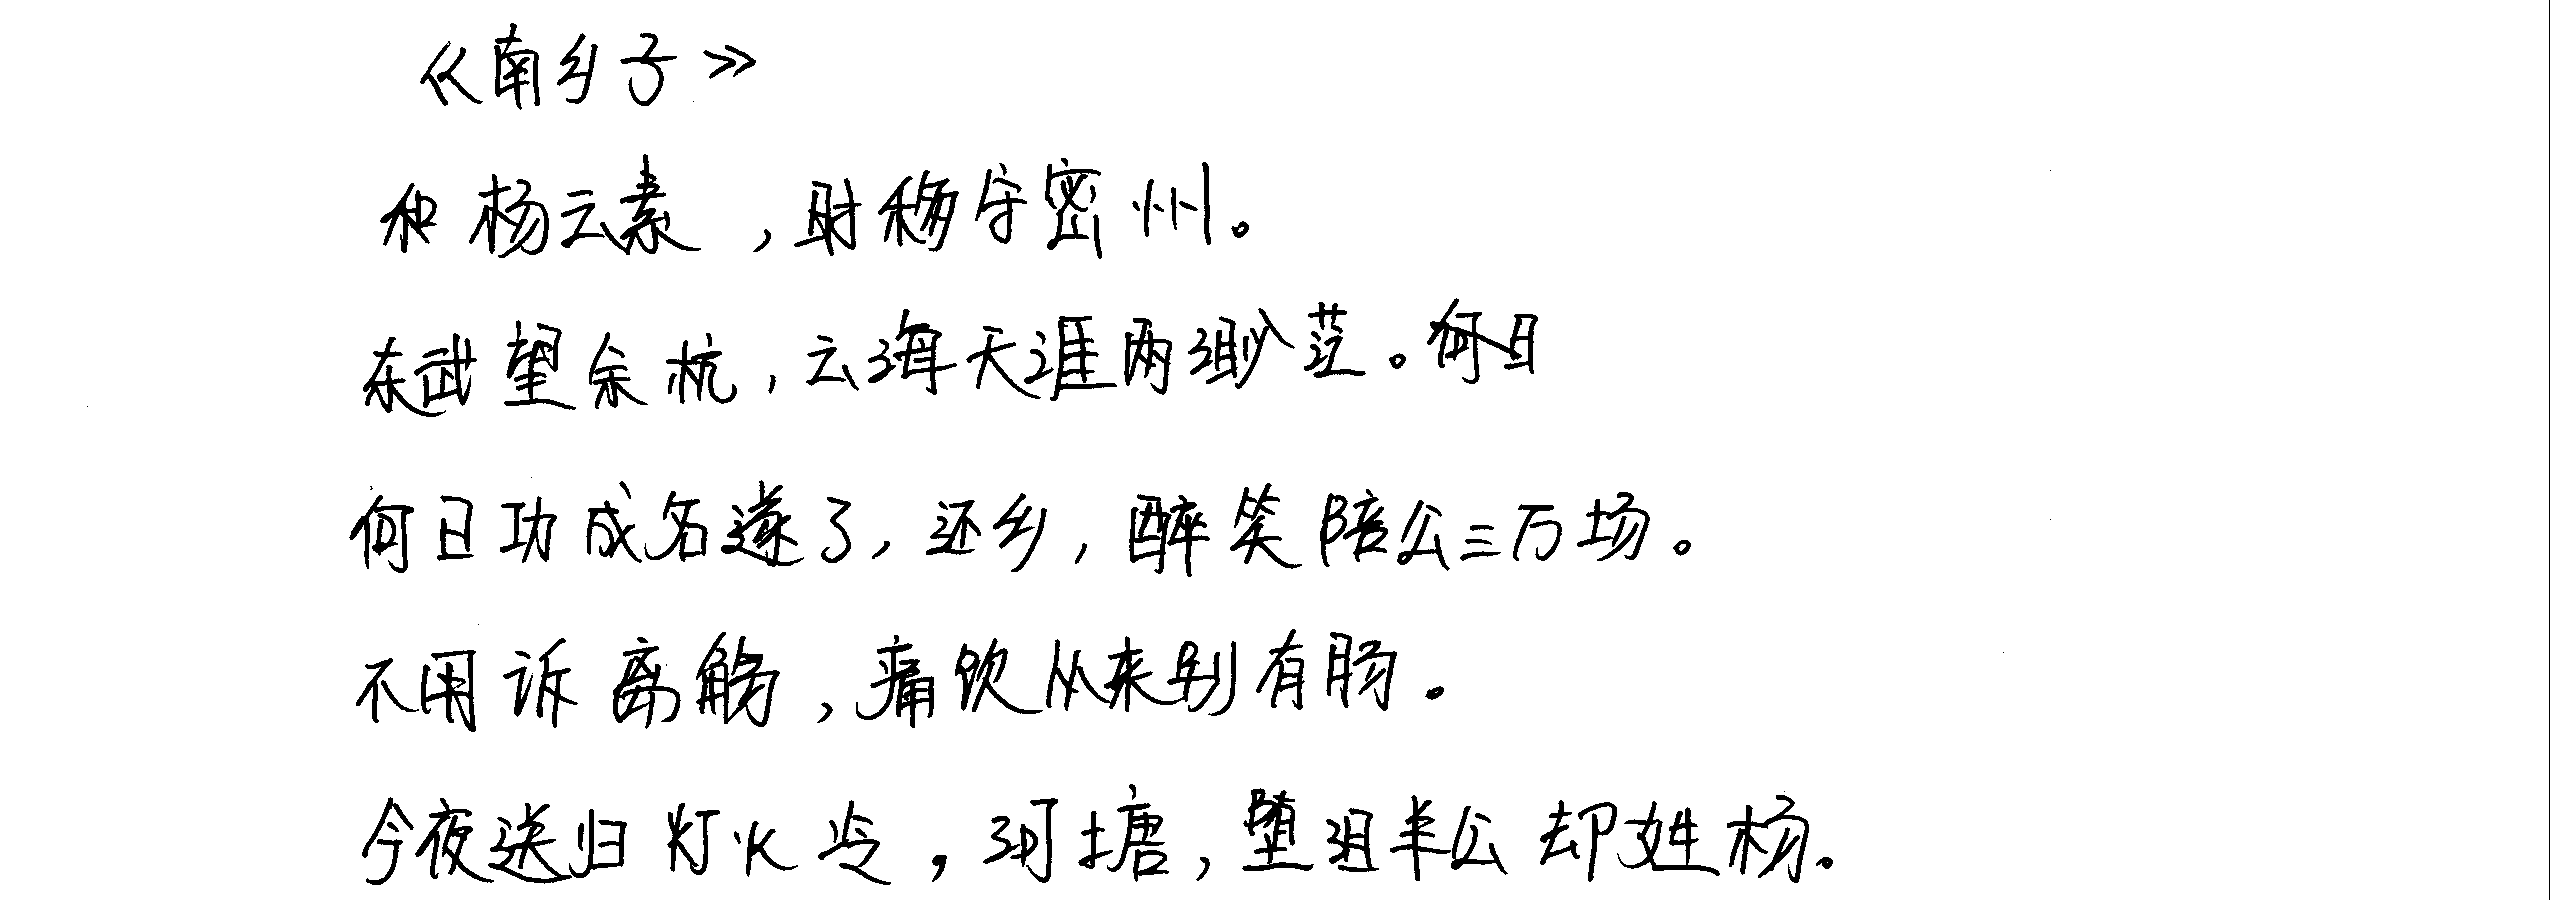 《南乡子》
和杨云素，时移守密州。
东武望余杭，云海天涯两渺茫。何日
何日功成名遂了，还乡，醉笑陪公三万场。
不用诉离觞，痛饮从来别有肠。
今夜送归灯火冷，河塘，堕泪羊公却姓杨。